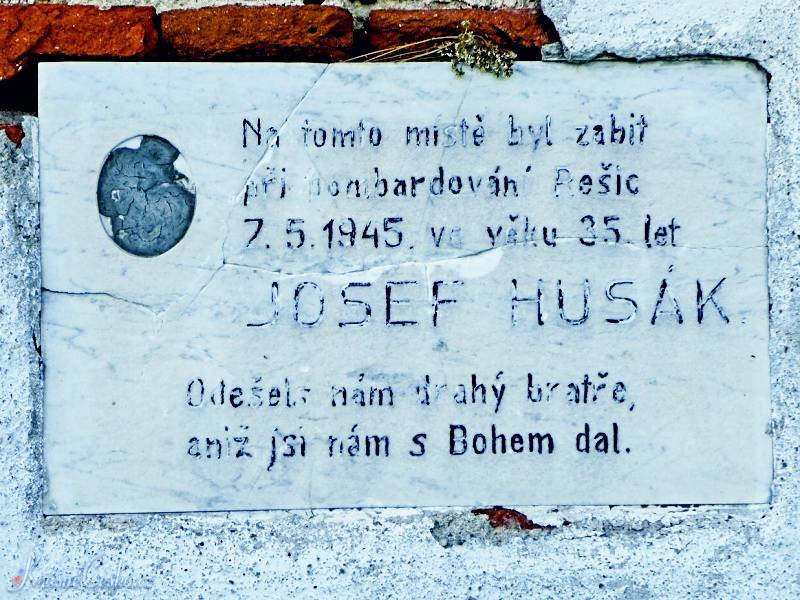 Na tomto místě byl zabit
při bombardování Rešic
7.5.1945. ve věku 35. let
JOSEF HUSÁK
Odešels nám drahý bratře,
aniž jsi nám s Bohem dal.